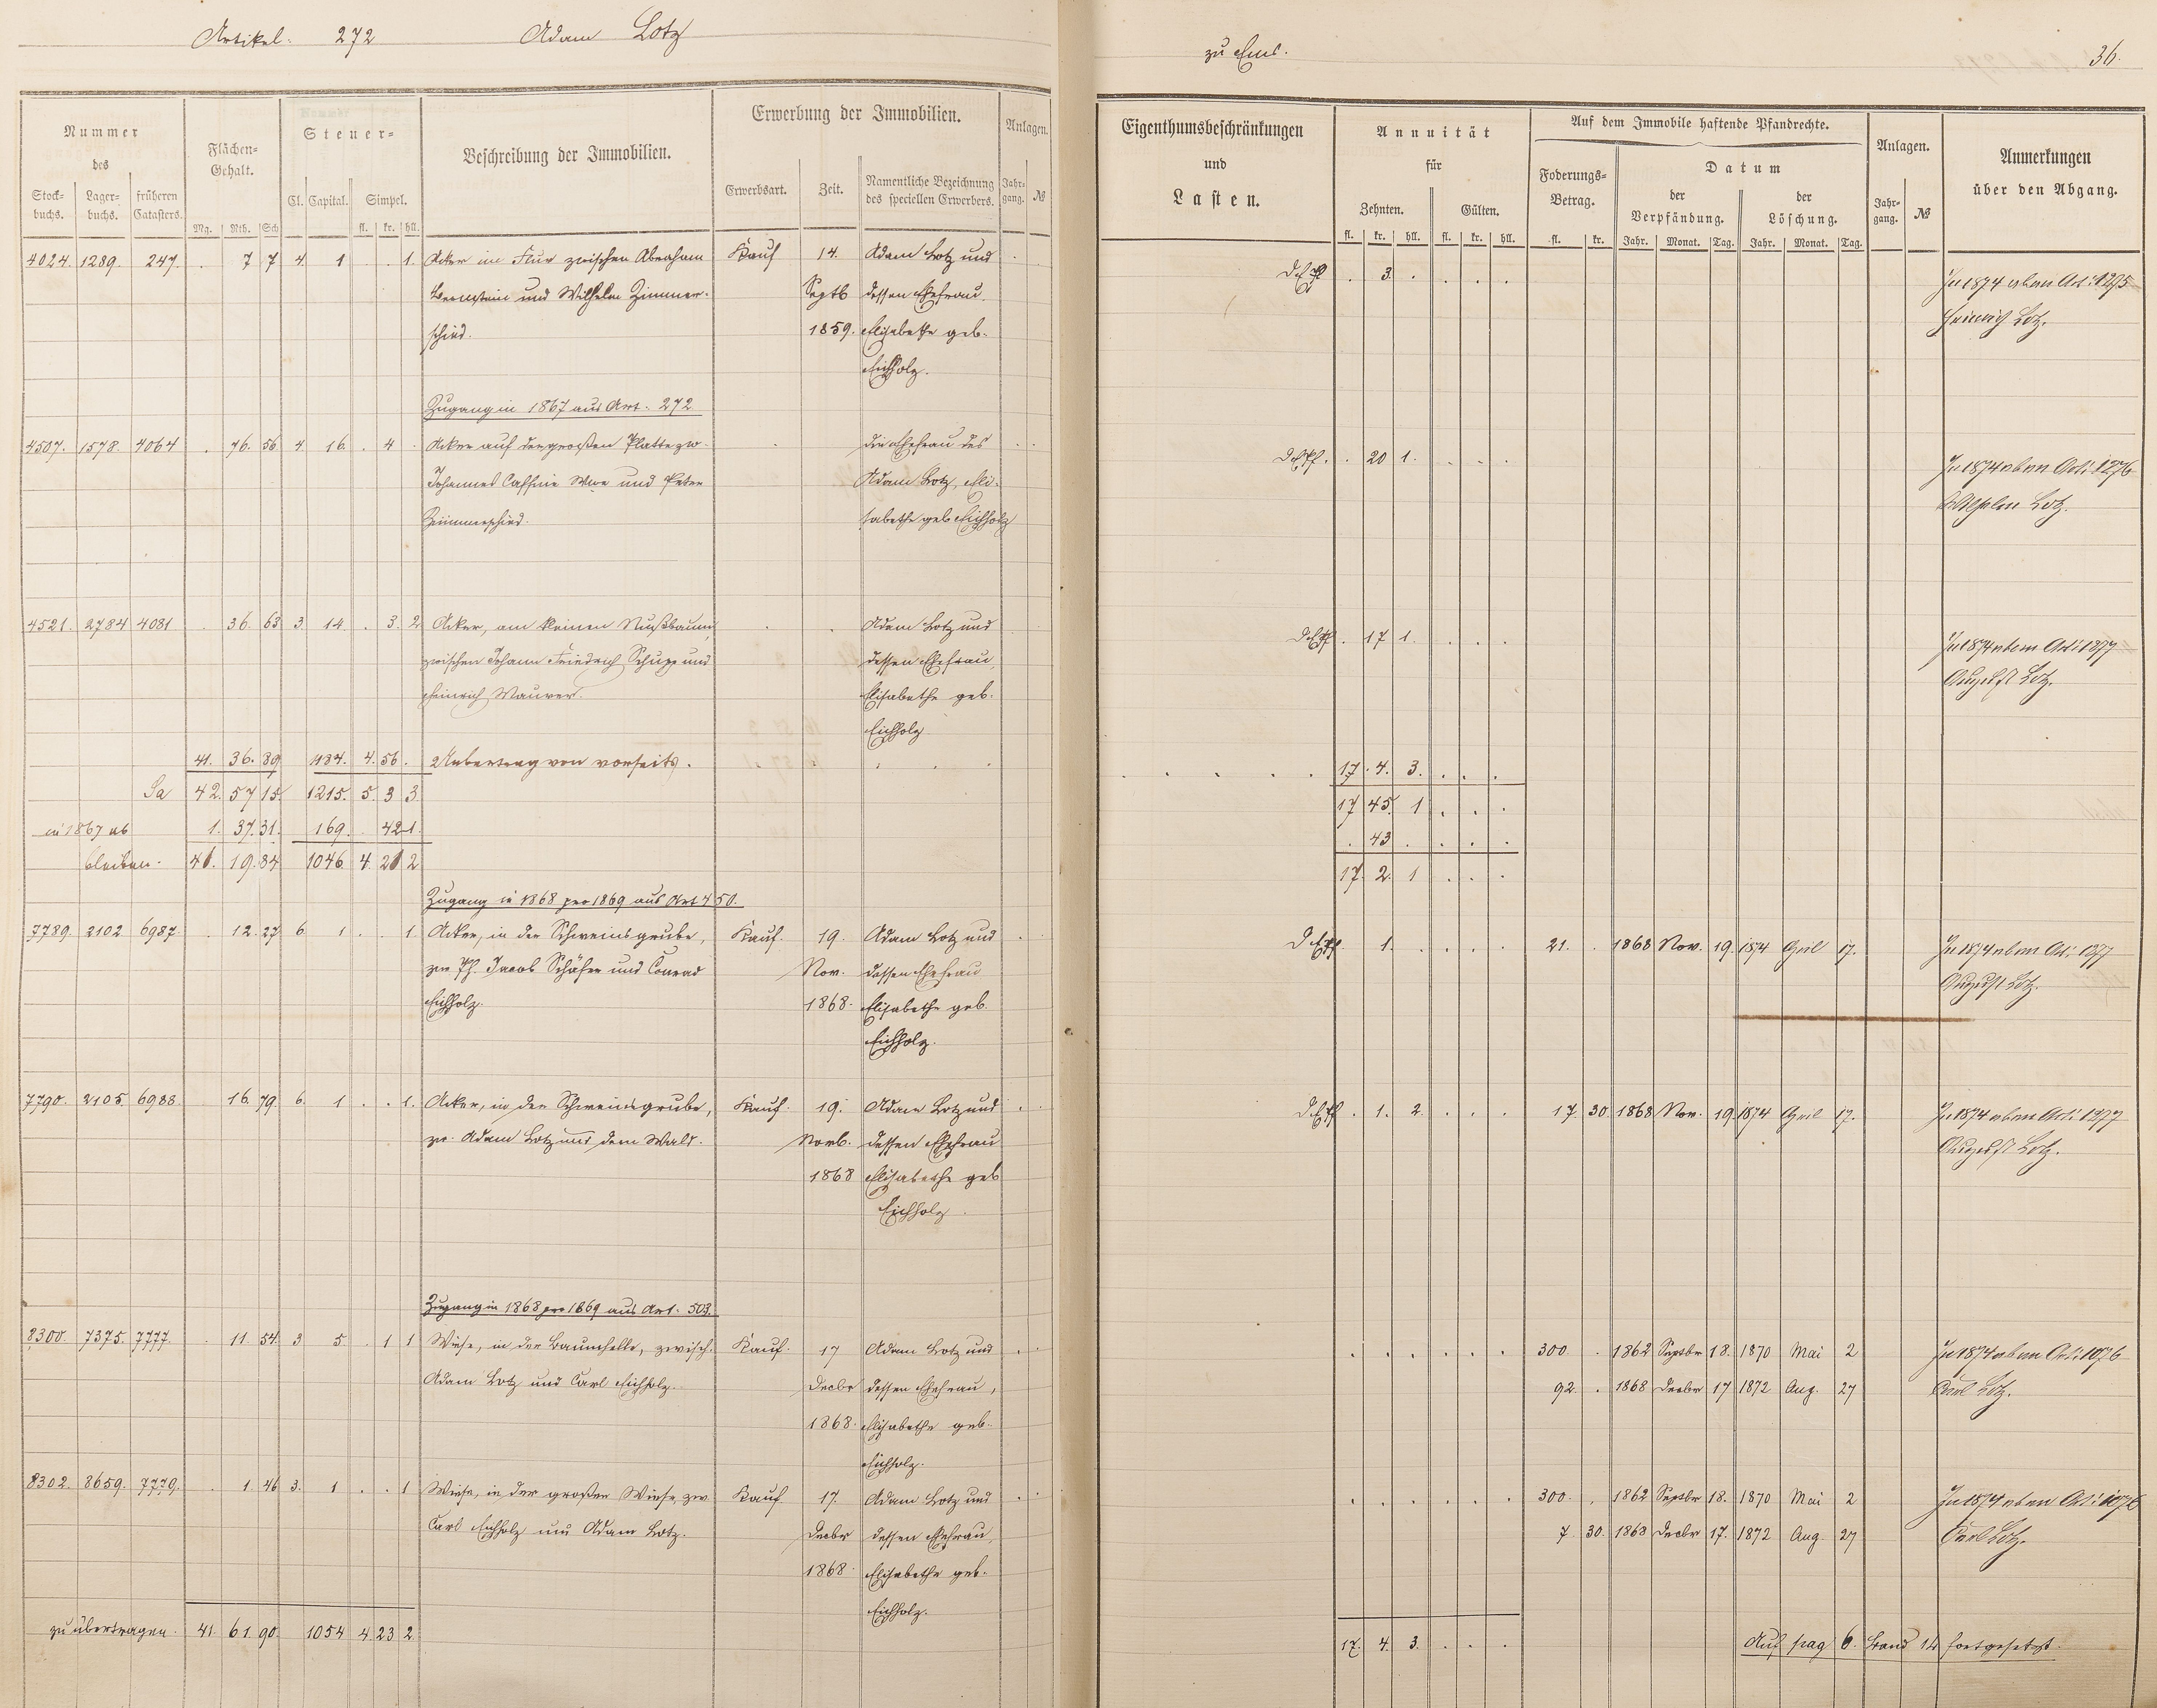 Artikel. 272 Adam Lotz
zu Ems. 36.
Nummer des
Stockbuchs. Lagerbuchs. früheren Catasters.
Flächen-Gehalt.
Mg. Rth. Sch
Steuer-
Cl. Capital. Simpel.
fl. kr. hll.
Beschreibung der Immobilien.
Erwerbung der Immobilien.
Erwerbsart. Zeit. Namentliche Bezeichnung des speciellen Erwerbers.
Anlagen.
Jahrgang. №
Eigenthumsbeschränkungen und Lasten.
Annuität für
Zehnten. Gülten.
fl. kr. hll. fl. kr. hll.
Auf dem Immobile haftende Pfandrechte.
Foderungs-Betrag.
fl. kr.
Datum
der Verpfändung. der Löschung.
Jahr. Monat. Tag. Jahr. Monat. Tag.
Anlagen.
Jahrgang. №
Anmerkungen über den Abgang.
4024. 1289. 247. . 7 7 4 1 . . 1. Acker im Flur zwischen Abraham Kauf 14. Adam Lotz und
. 3. . . . . In 1874 über Art: 1275
und Wilhelm Zimmer- Septb dessen Ehefrau,
Heinrich Lotz.
schied. 1859. Elisabethe geb.
Eichholz.
Zugang in 1867 aus Art. 272
4507. 1578. 4064 . 76. 56 4 16. . 4 . Acker auf der großen Platte zw. die Ehefrau des
. 20 1. . . . In 1874 über Art: 1276
Johannes Wwe und Peter Adam Lotz, Eli-
Wilhelm Lotz.
Zimmerschied. sabethe geb Eichholz
4521. 2784 4081 . 36. 63 3. 14. . 3. 2 Acker, am kleinen Nußbaum, Adam Lotz und
. 17 1. . . . In 1874 über Art: 1277
zwischen Johann Friedrich Schupp und dessen Ehefrau,
August Lotz.
Heinrich Maurer. Elisabethe geb.
Eichholz
41. 36. 89 1184. 4. 56. Uebertrag von vorseits.
17. 4. 3. . . .
Sa 42. 57 15. 1215. 5. 3 3
17 45. 1 . . .
in 1867 ab 1. 37. 31. 169. 42 1.
. 43 . . . .
bleiben. 41. 19. 84 1046. 4. 21 2
17. 2. 1 . . .
Zugang in 1868 pro 1869 aus Art 450.
7789. 2102 6987. . 12. 27 6 1 . . 1. Acker, in der Schweinsgrube, Kauf. 19. Adam Lotz und
. 1. . . . . 21. . 1868 Nov. 19. 1874 April 17. In 1874 über Art: 1277
zw Ph. Jacob Schäfer und Conrad Nov. dessen Ehefrau
August Lotz.
Eichholz. 1868. Elisabethe geb.
Eichholz.
7790. 2105. 6988. 16. 79. 6. 1 . . 1. Acker, in der Schweinsgrube, Kauf. 19. Adam Lotz und
. 1. 2. . . . 17. 30. 1868 Nov. 19. 1874 April 17. In 1874 über Art: 1277
zw. Adam Lotz und dem Wald. Novb. dessen Ehefrau
August Lotz.
1868 Elisabethe geb
Eichholz.
Zugang in 1868 pro 1869 aus Art. 503.
8300. 7375. 7777. . 11. 54. 3 5 . 1 1 Wiese, in der Baumhelle, zwisch. Kauf. 17 Adam Lotz und
. . . . . . 300. . 1862 Septbr 18. 1870 Mai 2 In 1874 über Art: 1076
Adam Lotz und Carl Eichholz. Decbr dessen Ehefrau,
92. . 1868 Decbr 17 1872 Aug. 27 Carl Lotz.
1868. Elisabethe geb.
Eichholz.
8302. 8659. 7779. . 1. 46 3. 1 . . 1 Wiese, in der großen Wiese, zw Kauf 17. Adam Lotz und
. . . . . . 300. . 1862 Septbr 18. 1870 Mai 2 In 1874 über Art: 1076
Carl Eichholz und Adam Lotz. Decbr dessen Ehefrau,
7. 30. 1868 Decbr 17. 1872 Aug. 27 Carl Lotz.
1868. Elisabethe geb.
Eichholz.
zu übertragen. 41. 61. 90. 1054 4. 23 2.
17. 4. 3. . . . Auf pag 6. Band 14 fortgesetzt.